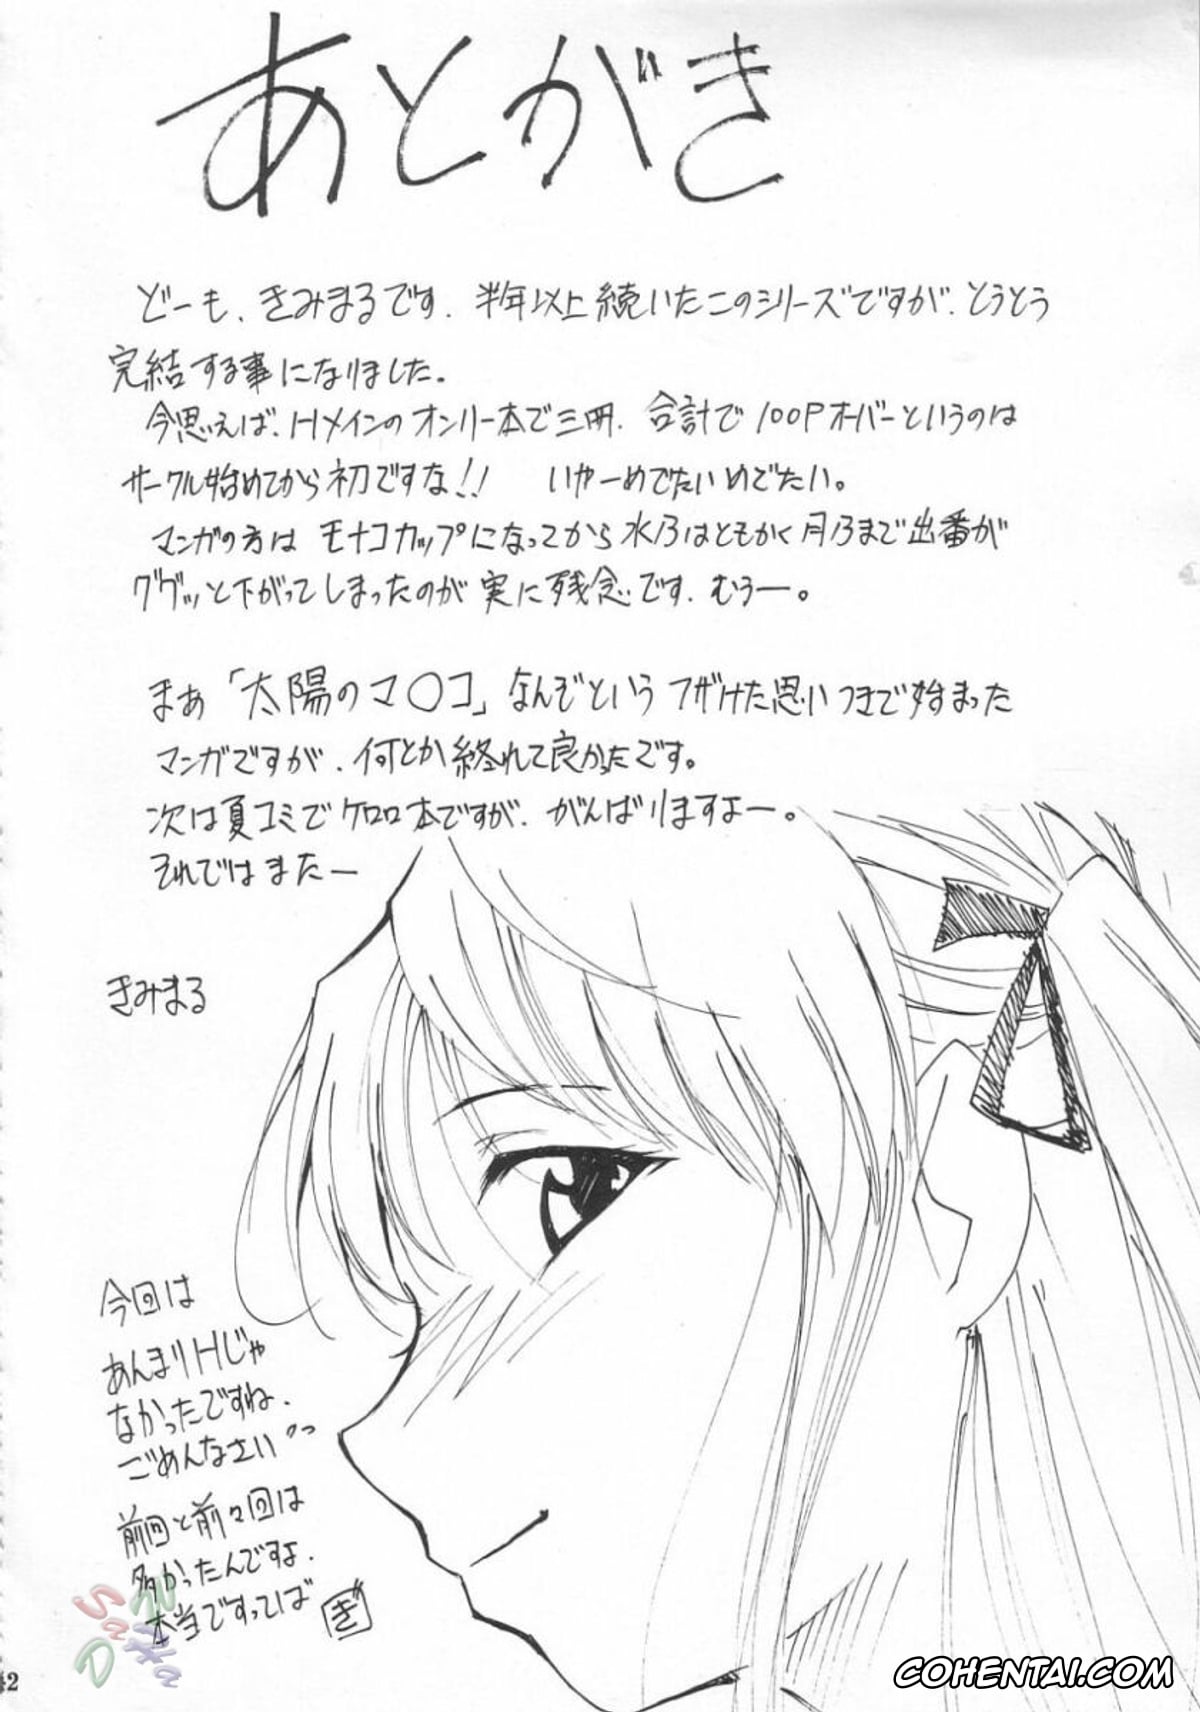 あとがき
どーも、きみまるです。半年以上続いたこのシリーズですが、とうとう
完結する事になりました。
今思えば、Hメインのオンリー本で三冊、合計で100Pオーバーというのは
サークル始めてから初ですな!! いやーめでたいめでたい。
マンガの方はモナコカップになってから水乃はともかく月乃まで出番が
ググッと下がってしまったのが実に残念です、むぅー。
まぁ「太陽のマ○コ」なんぞというフザけた思いつきで始まった
マンガですが、何とか終れて良かったです。
次は夏コミでケロロ本ですが、がんばりますよー。
それではまたー
きみまる
今回は
あんまりHじゃ
なかったですね、
ごめんなさい
前回と前々回は
多かったんですよ、
本当ですってば
ぎ
SaD
COHENTAI.COM
42